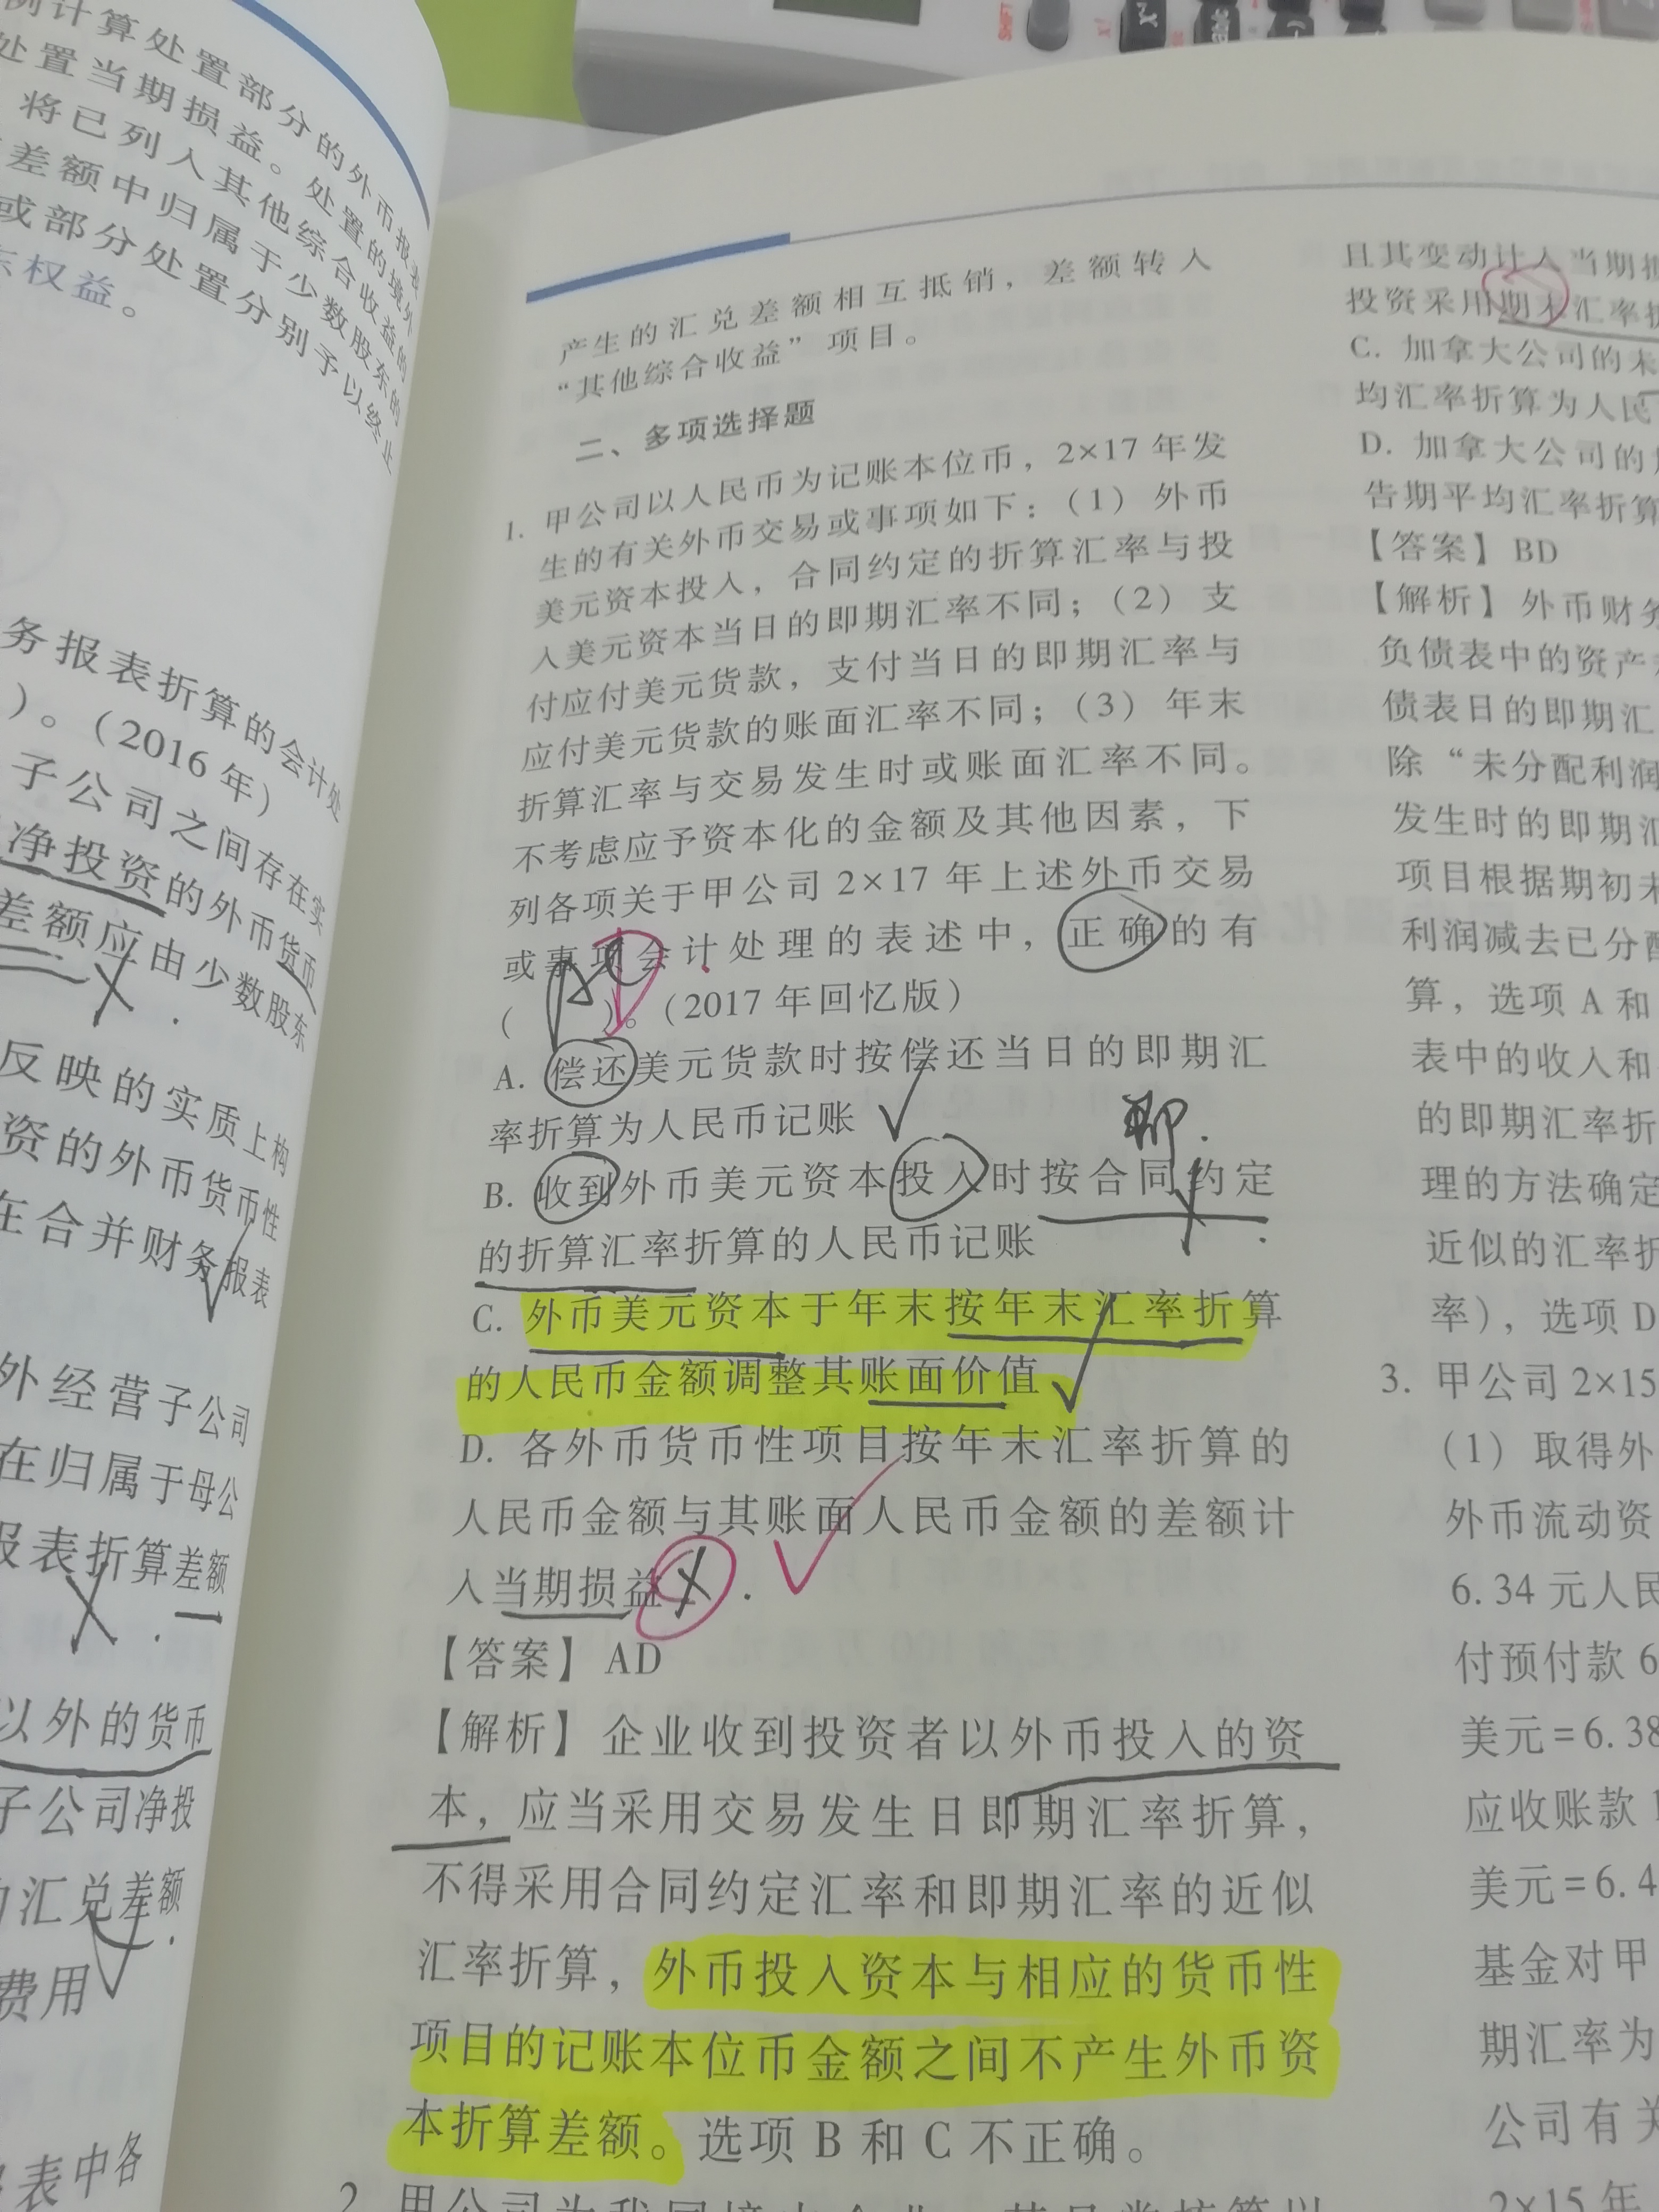 例计算处置部分的外币报表
处置当期损益。处置的境外
将已列入其他综合收益的
差额中归属于少数股东的
或部分处置分别予以终止
东权益。
务报表折算的会计处
)。(2016 年)
子公司之间存在实
净投资的外币货币
差额应由少数股东
反映的实质上构
资的外币货币性
在合并财务报表
外经营子公司
在归属于母公
报表折算差额
以外的货币
子公司净投
汇兑差额
费用
表中各
产生的汇兑差额相互抵销，差额转入
“其他综合收益”项目。
二、多项选择题
1. 甲公司以人民币为记账本位币，2×17 年发
生的有关外币交易或事项如下：(1) 外币
美元资本投入，合同约定的折算汇率与投
入美元资本当日的即期汇率不同；(2) 支
付应付美元货款，支付当日的即期汇率与
应付美元货款的账面汇率不同；(3) 年末
折算汇率与交易发生时或账面汇率不同。
不考虑应予资本化的金额及其他因素，下
列各项关于甲公司 2×17 年上述外币交易
或事项会计处理的表述中，正确的有
( )。(2017 年回忆版)
A. 偿还美元货款时按偿还当日的即期汇
率折算为人民币记账
B. 收到外币美元资本投入时按合同约定
的折算汇率折算的人民币记账
C. 外币美元资本于年末按年末汇率折算
的人民币金额调整其账面价值
D. 各外币货币性项目按年末汇率折算的
人民币金额与其账面人民币金额的差额计
入当期损益
【答案】AD
【解析】企业收到投资者以外币投入的资
本，应当采用交易发生日即期汇率折算，
不得采用合同约定汇率和即期汇率的近似
汇率折算，外币投入资本与相应的货币性
项目的记账本位币金额之间不产生外币资
本折算差额。选项 B 和 C 不正确。
2
且其变动计入当期损
投资采用期末汇率折
C. 加拿大公司的未
均汇率折算为人民
D. 加拿大公司的
告期平均汇率折算
【答案】BD
【解析】外币财务
负债表中的资产
债表日的即期汇
除“未分配利润
发生时的即期汇
项目根据期初未
利润减去已分配
算，选项 A 和
表中的收入和
的即期汇率折
理的方法确定
近似的汇率折
率)，选项 D
3. 甲公司 2×15
(1) 取得外
外币流动资
6.34 元人民
付预付款 6
美元=6.38
应收账款
美元=6.4
基金对甲
期汇率为
公司有关
2×15 年